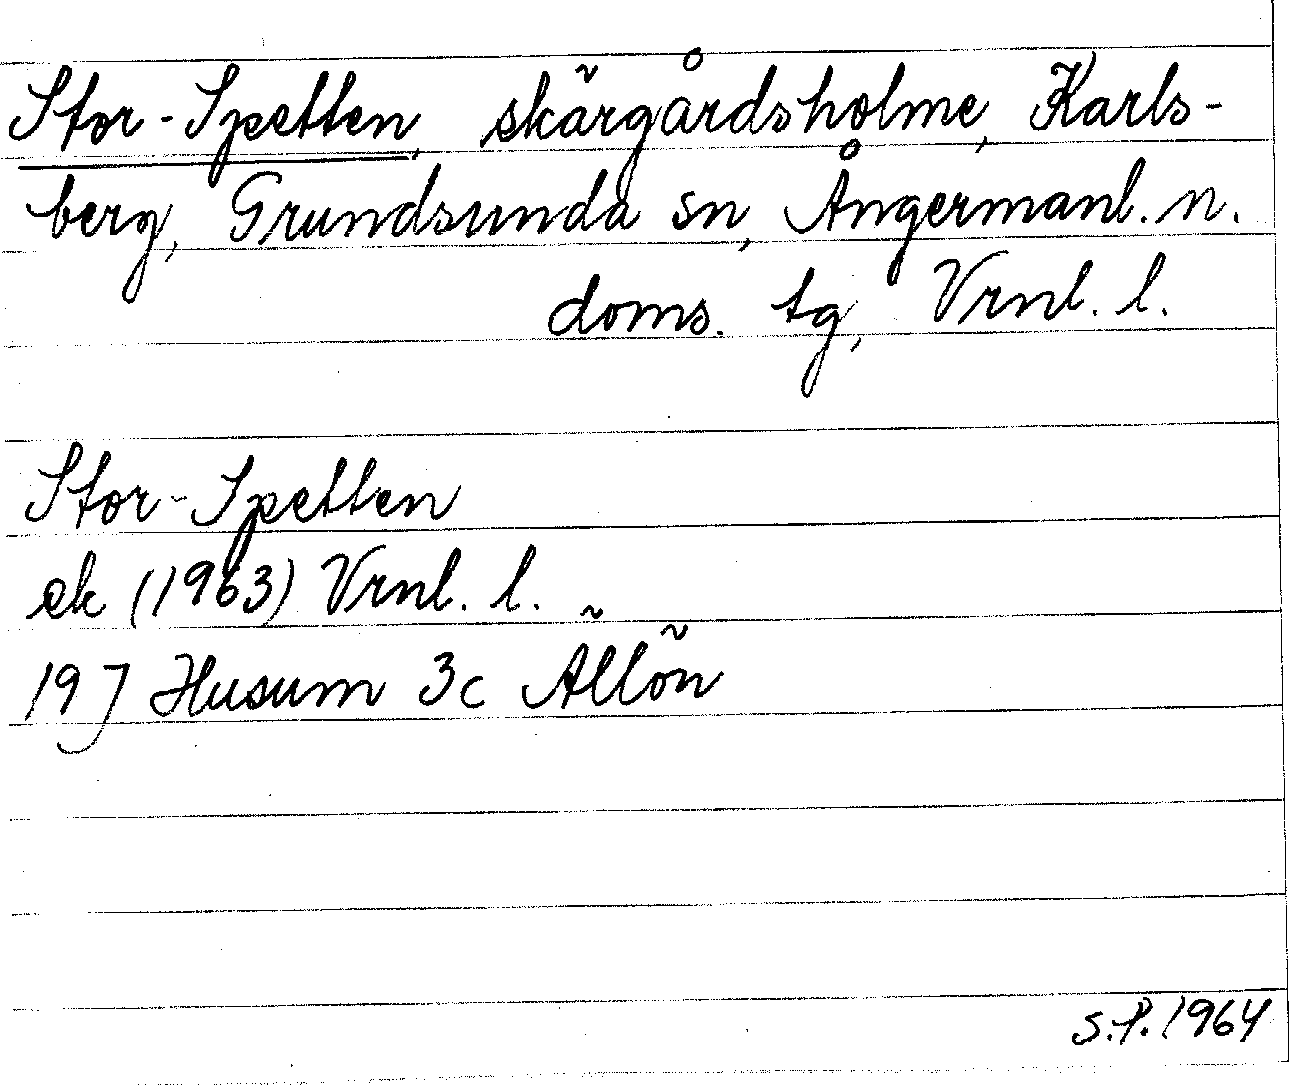 Stor-Spetten, skärgårdsholme, Karls-
berg, Grundsunda sn, Ångermanl. n.
doms. tg, Vrnl. l.
Stor-Spetten
ek (1963) Vrnl. l.
19 J Husum 3c Ällön
S.P. 1964